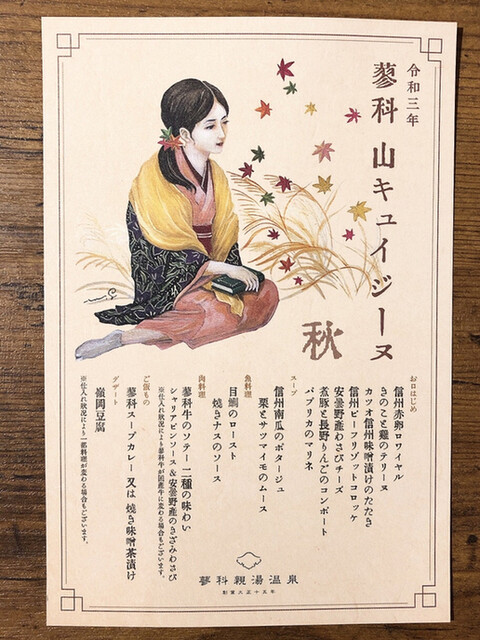 令和三年
蓼科 山キュイジーヌ
秋
お口はじめ
信州赤卵ロワイヤル
きのこと鶏のテリーヌ
カツオ信州味噌漬けのたたき
信州ビーフリゾットコロッケ
安曇野産わさびチーズ
煮豚と長野りんごのコンポート
パプリカのマリネ
スープ
信州南瓜のポタージュ
栗とサツマイモのムース
魚料理
目鯛のロースト
焼きナスのソース
肉料理
蓼科牛のソテー 二種の味わい
シャリアピンソース&安曇野産のきざみわさび
※仕入れ状況により蓼科牛が国産牛に変わる場合もございます。
ご飯もの
蓼科スープカレー 又は 焼き味噌茶漬け
デザート
嶺岡豆腐
※仕入れ状況により一部料理が変わる場合もございます。
蓼科親湯温泉
創業大正十五年